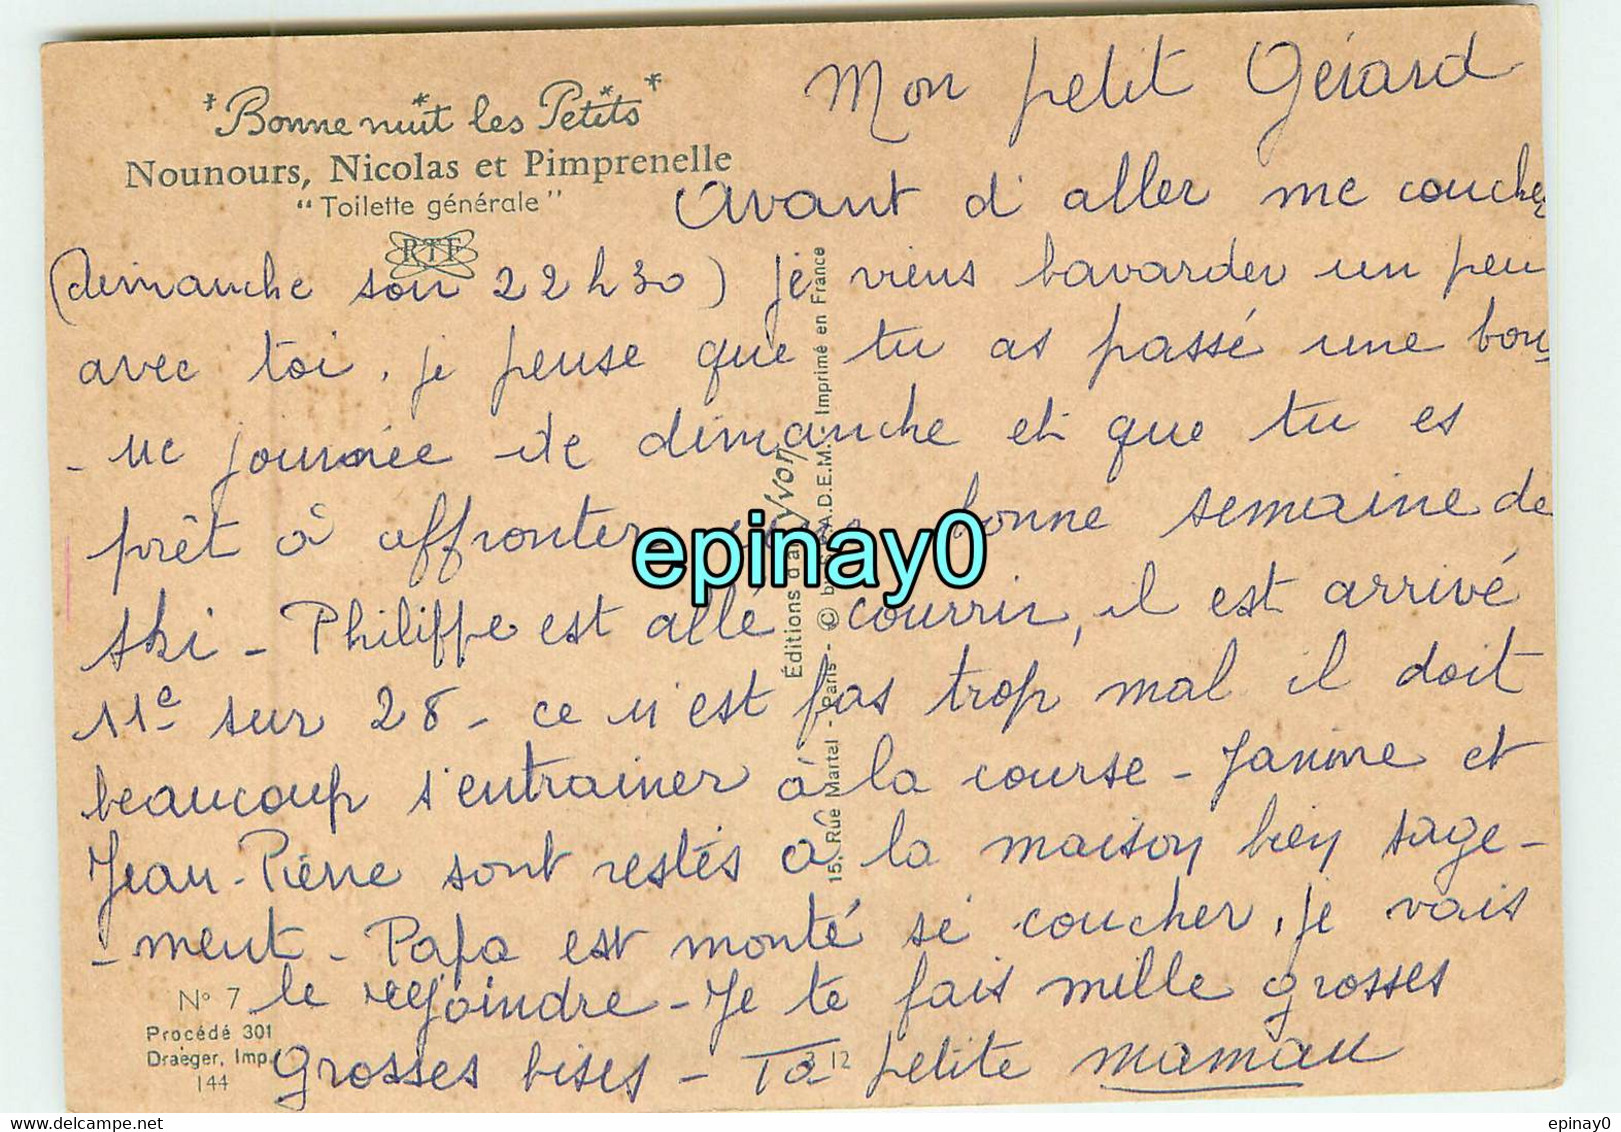 *Bonne nuit les Petits*
Nounours, Nicolas et Pimprenelle
"Toilette générale"
RTF
Mon petit Gérard
Avant d'aller me coucher
(dimanche soir 22 h 30) je viens bavarder un peu
avec toi, je pense que tu as passé une bon-
-ne journée de dimanche et que tu es
prêt à affronter une bonne semaine de
ski - Philippe est allé courrir, il est arrivé
11e sur 28 - ce n'est pas trop mal il doit
beaucoup s'entrainer à la course - Janine et
Jean-Pierre sont restés à la maison bien sage-
-ment - Papa est monté se coucher, je vais
le rejoindre - Je te fais mille grosses
grosses bises - Ta petite maman
Éditions d'a Yvon
15, Rue Martel - Paris - © by A.D.E.M. Imprimé en France
N° 7
Procédé 301
Draeger, Imp.
144
3 12
epinay0
epinay0